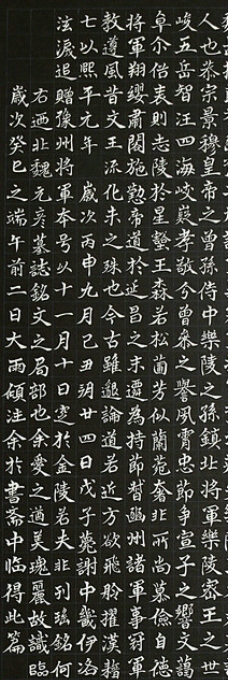 人也恭宗景穆皇帝之曾孫侍中樂陵之孫鎮北將軍樂陵密王之世
峻五岳智汪四海岐嶷孝敬今曾參之譽夙霄忠節爭宣子之響文藹
阜介偕表則志陵於星王森若松茴芳似蘭苑奢非所尚菓儉自德
軍將翔纓肅闥施懃帝道於延昌之末遷為持節督幽州諸軍事冠軍
教遵風昔文王流化未之殊也今古雖邈論道若近方欲飛濯漢籍
七以熙平元年 歲次丙申九月己丑朔廿四日戊子薨謝中畿伊洛
泫淚追贈豫州將軍本号以十一月十日窆於金陵若夫非列瑤銘何
右迺北魏元彥墓誌銘文之局部也余愛之遒美瑰麗故識臨
歲次癸巳之端午前二日大雨傾注余於書齋中臨得此篇